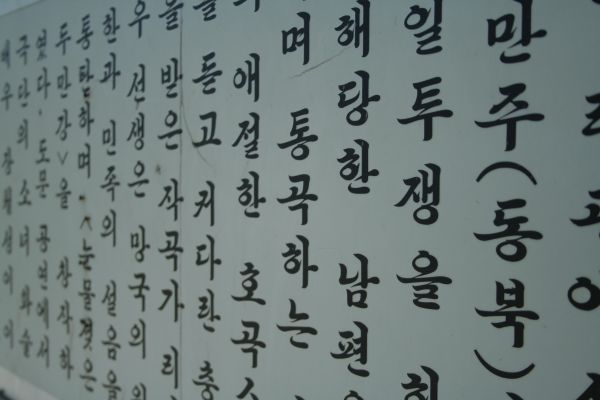 만주(동북)
일투쟁을
해당한 남편
며 통곡하는
애절한 호곡
듣고 커다란 충
을 받은 작곡가 리
우 선생은 망국의
한과 민족의 설음을
통탄하며 <눈물젖은
두만강>을 창작하
였다. 도문 공연에서
극단의 소녀 화술
배우